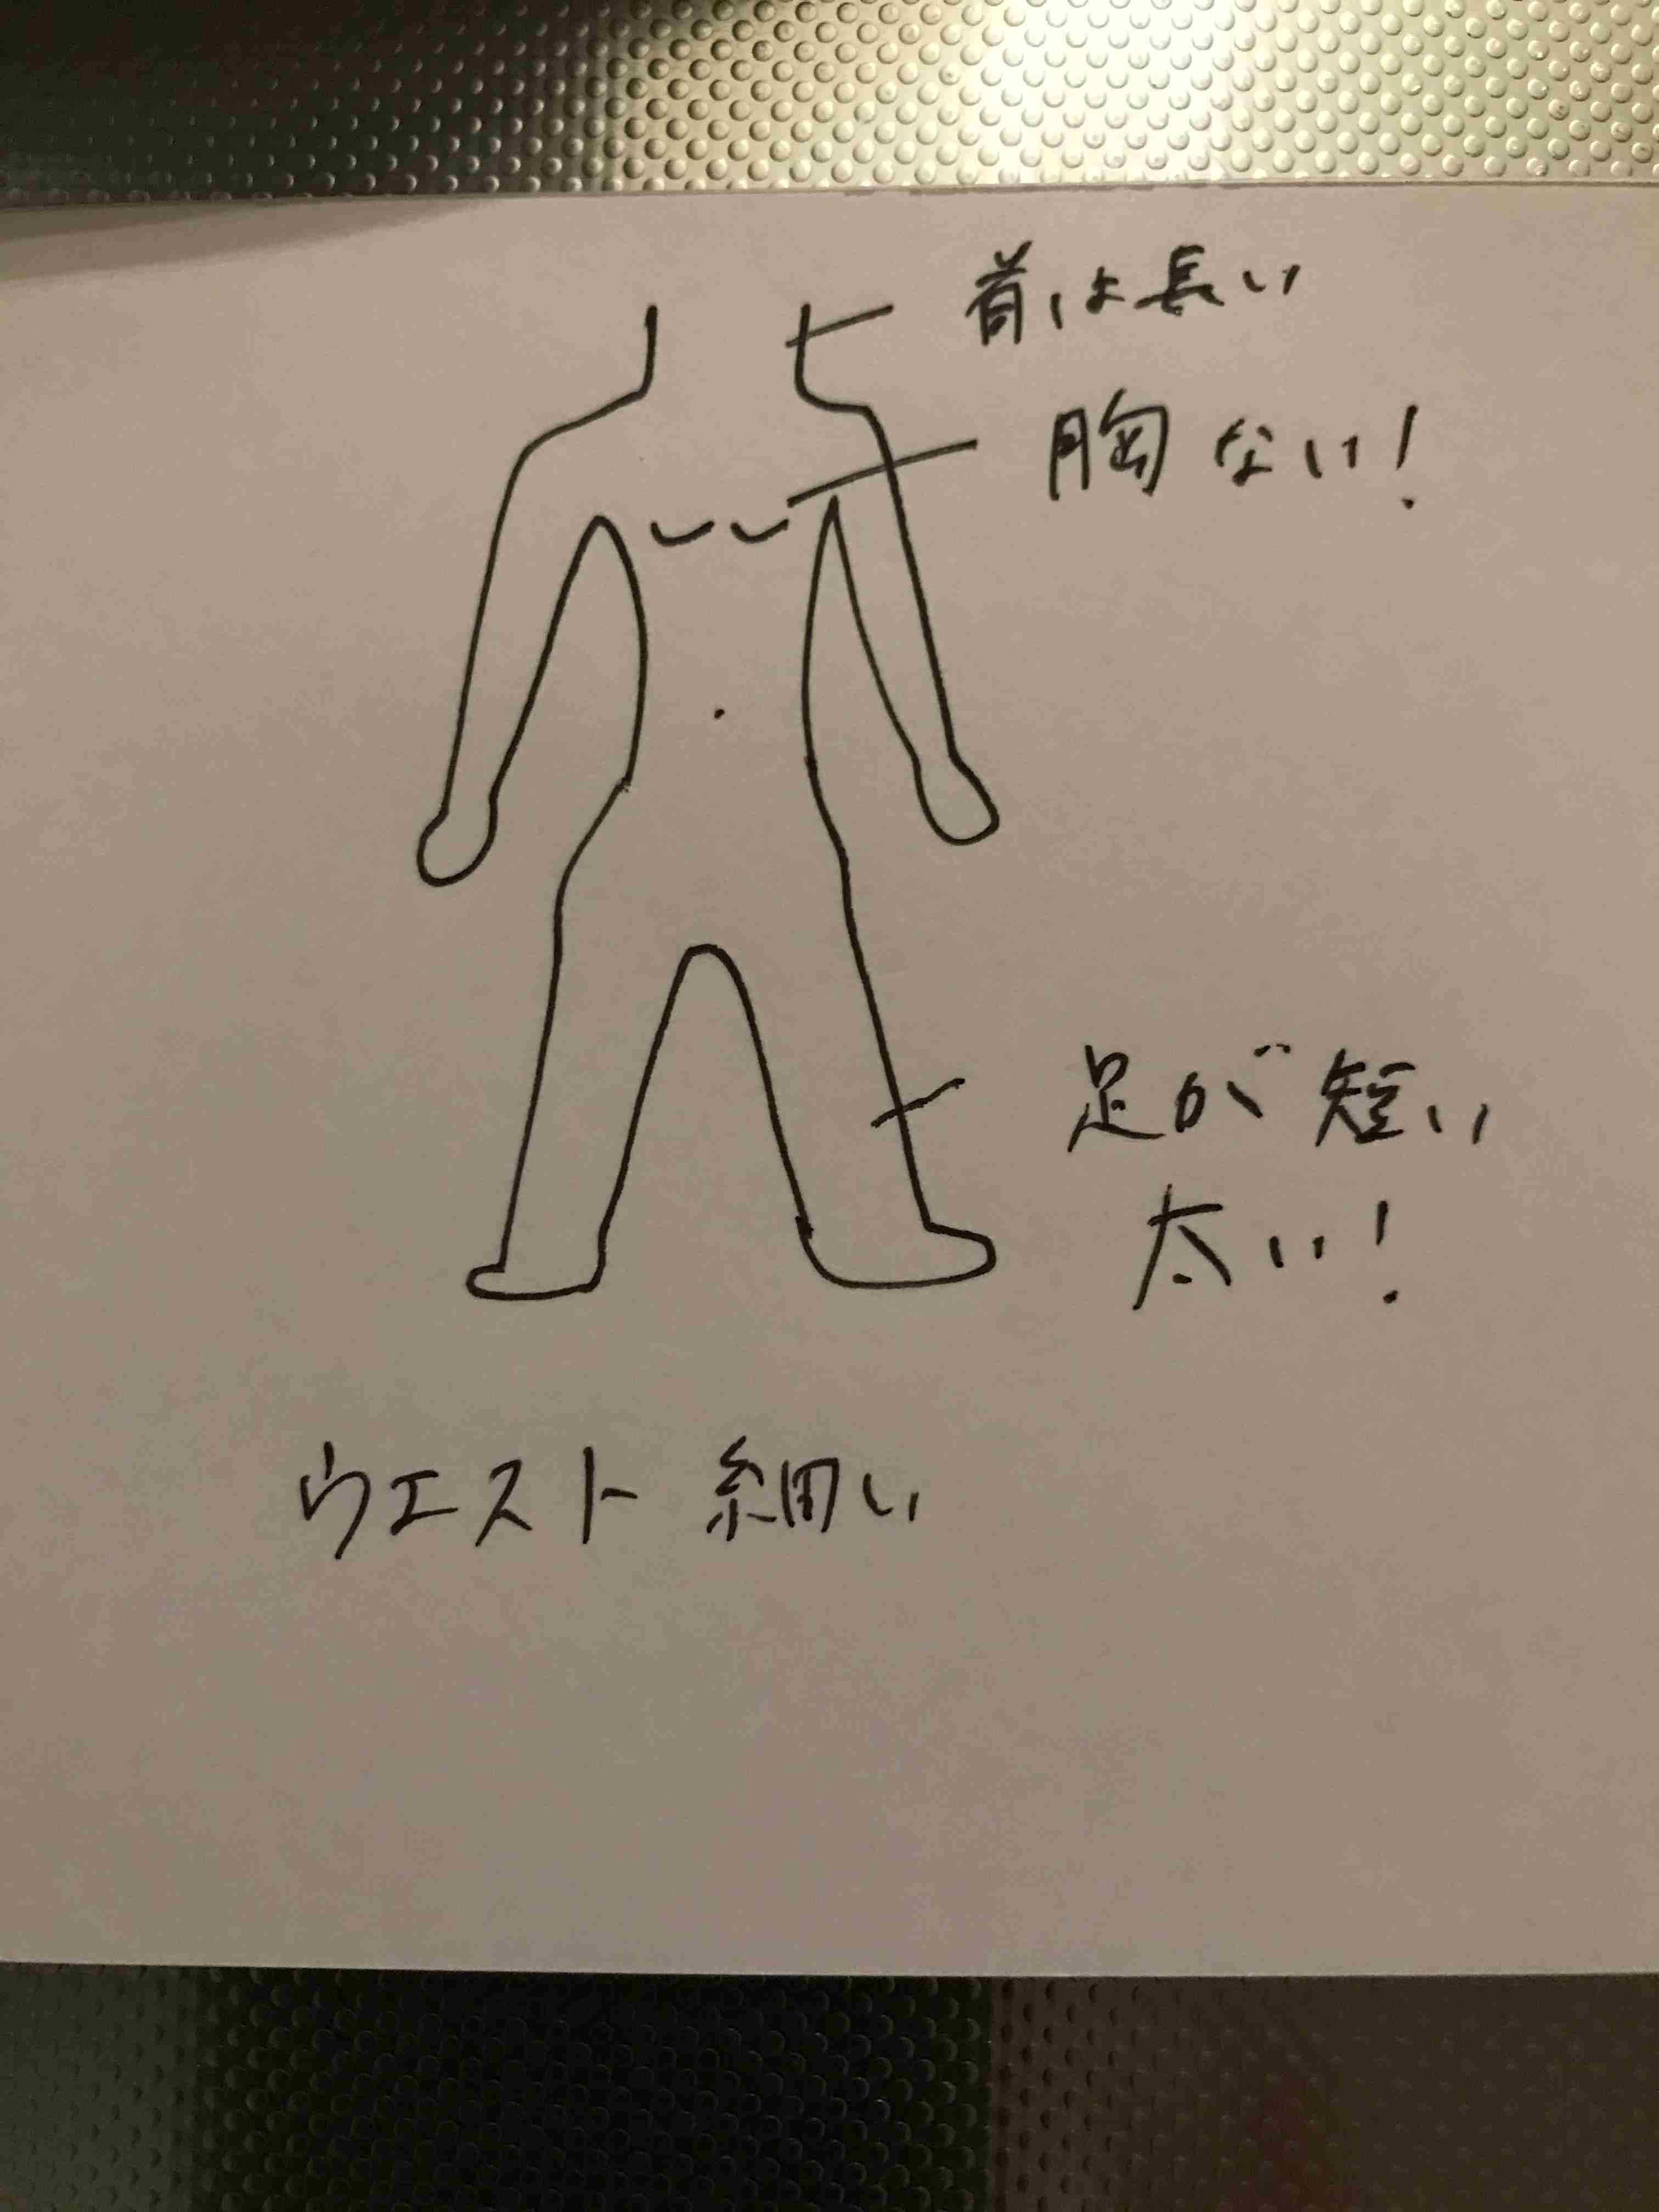 首は長い
胸ない!
足が短い
太い!
ウエスト細い